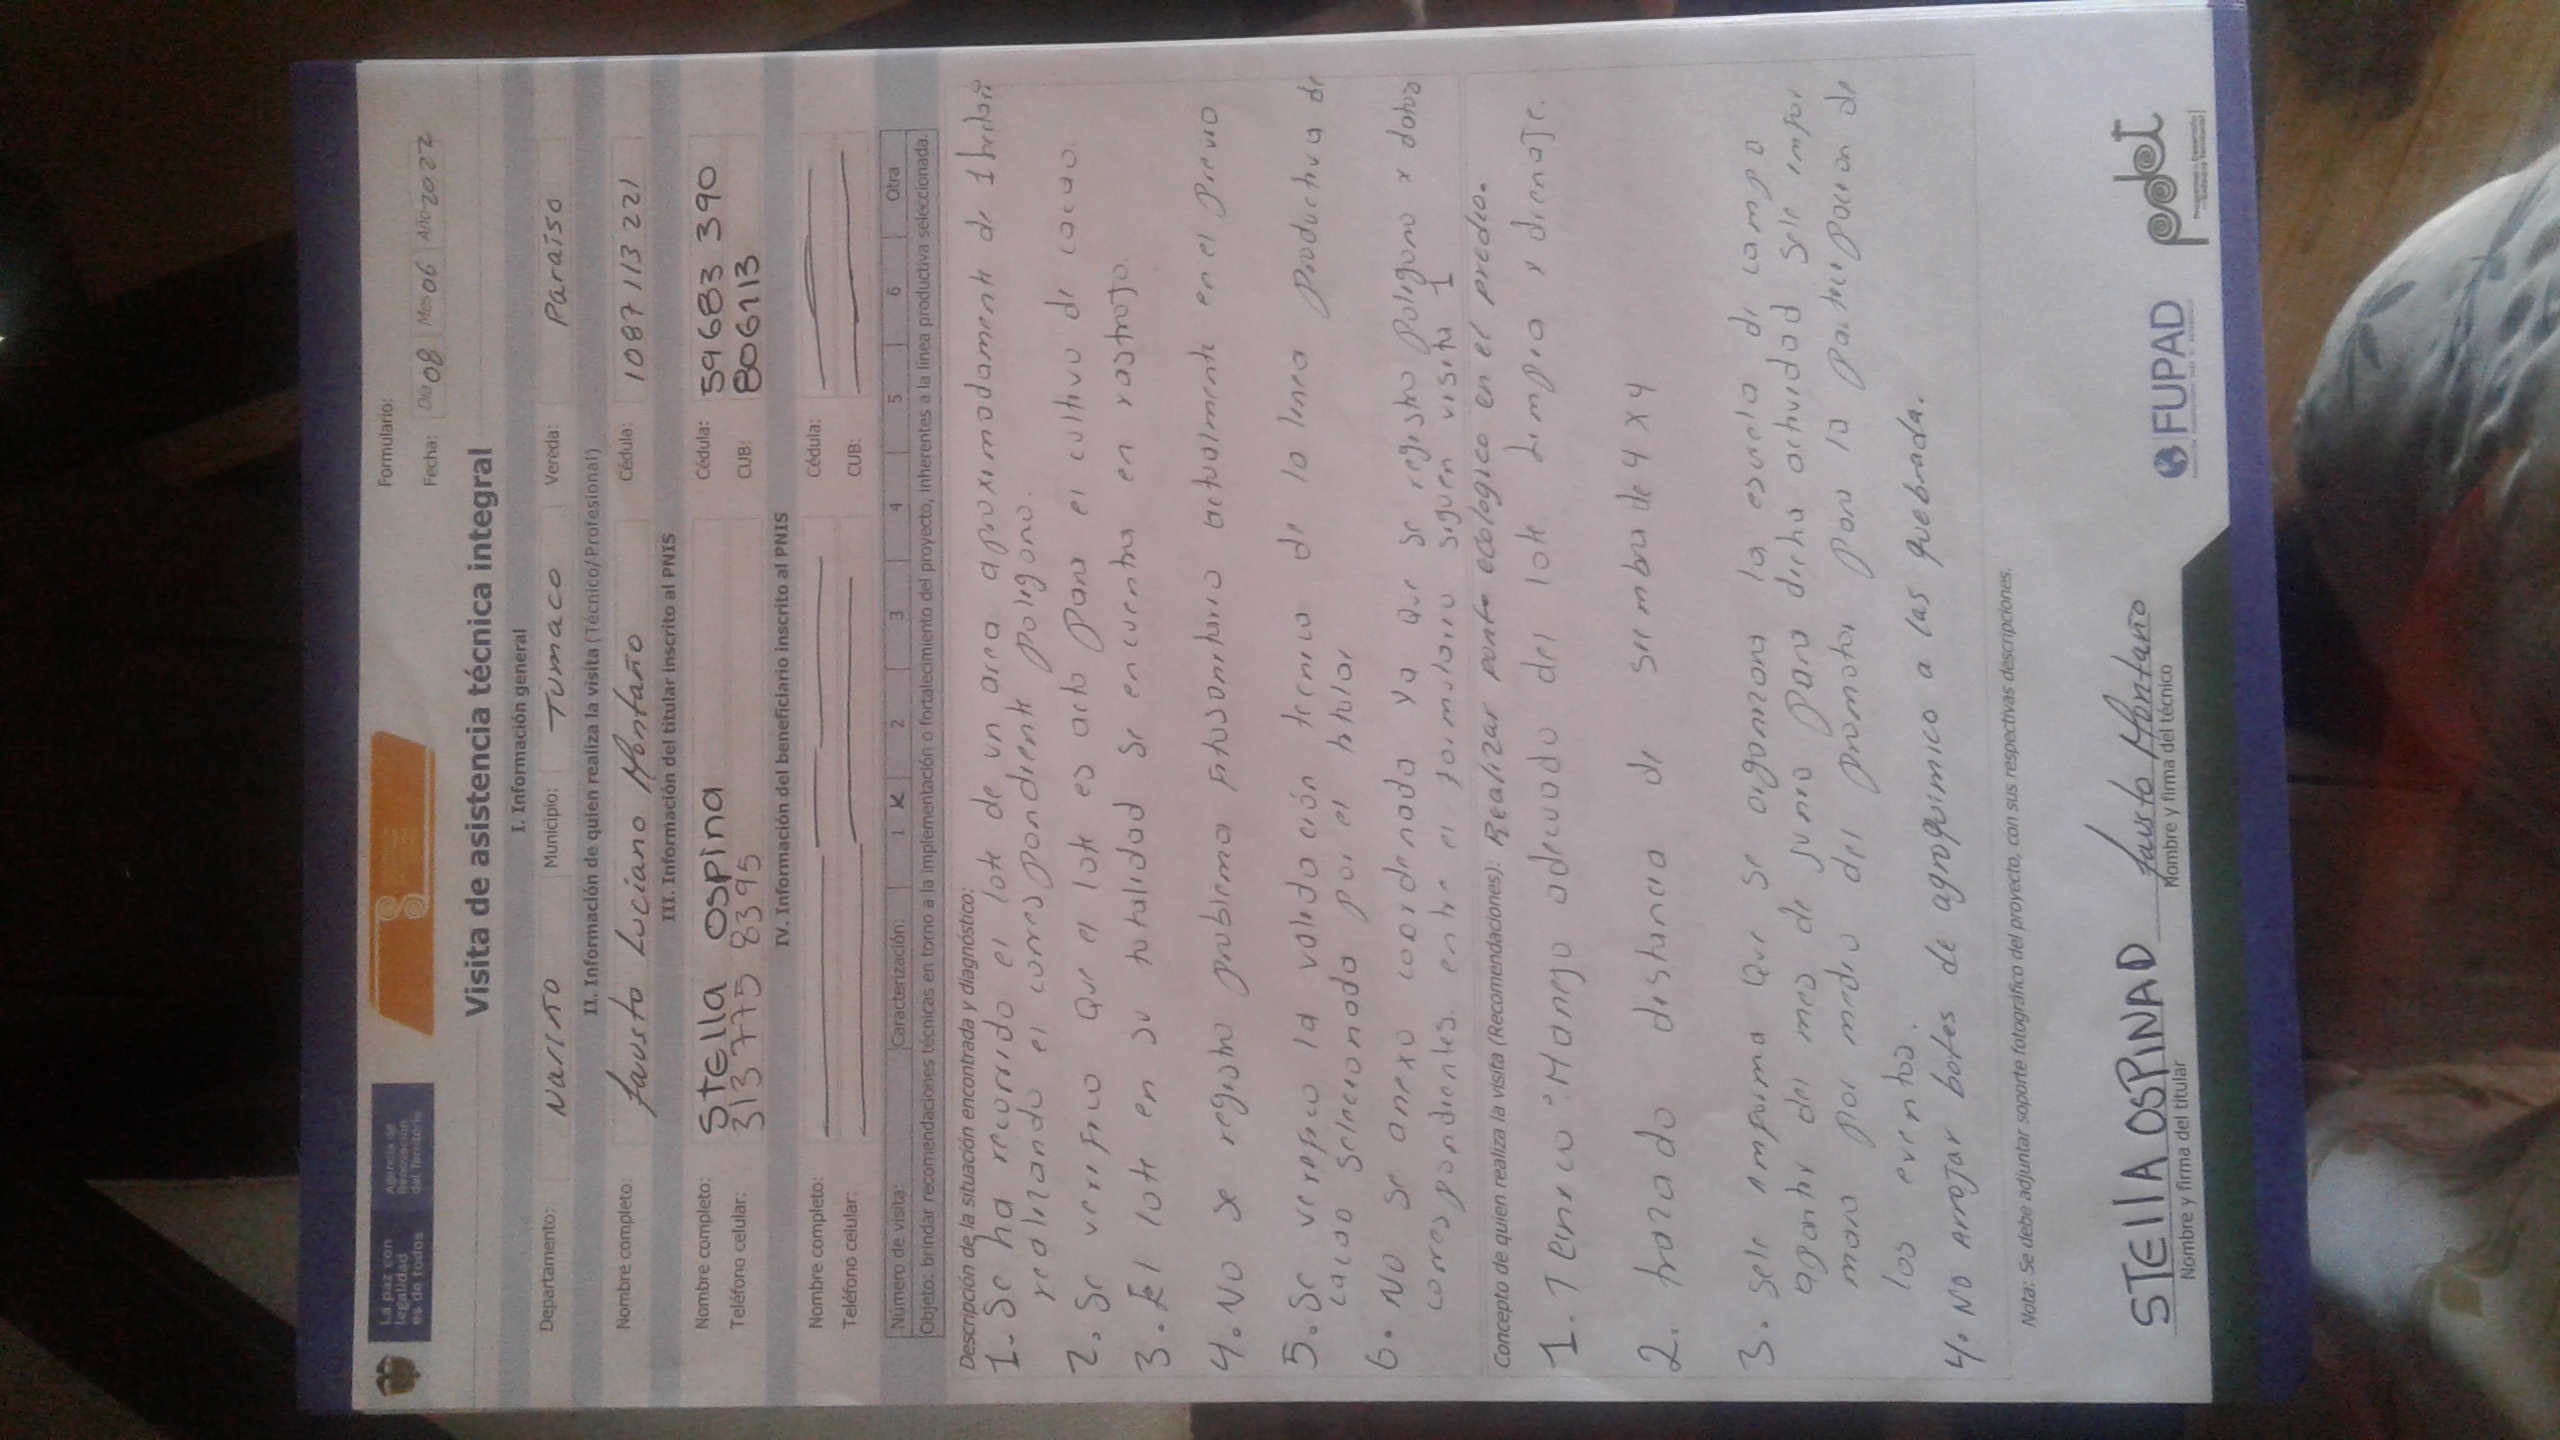 La paz con
legalidad
es de todos
Agencia de
Renovación
del Territorio
Formulario:
Fecha: Día 08 Mes 06 Año 2022
Visita de asistencia técnica integral
I. Información general
Departamento: Nariño Municipio: Tumaco Vereda: Paraíso
II. Información de quien realiza la visita (Técnico/Profesional)
Nombre completo: Fausto Luciano Montaño Cédula: 1087113221
III. Información del titular inscrito al PNIS
Nombre completo: Stella Ospina Cédula: 59683390
Teléfono celular: 313 775 8395 CUB: 806113
IV. Información del beneficiario inscrito al PNIS
Nombre completo: Cédula:
Teléfono celular: CUB:
Número de visita: Caracterización: 1 x 2 3 4 5 6 Otra
Objeto: brindar recomendaciones técnicas en torno a la implementación o fortalecimiento del proyecto, inherentes a la línea productiva seleccionada.
Descripción de la situación encontrada y diagnóstico:
1. Se ha recorrido el lote de un area aproximadamente de 1
realizando el correspondiente poligono.
2. Se verifico que el lote es acto para el cultivo de cacao.
3. El lote en su totalidad se encuentra en rastrojo.
4. No se registro problema fitosanitario actualmente en el previo
5. Se verifico la validación tecnico de la linea productiva de
cacao seleccionada por el titular
6. No se anexo coordenada ya que se registro poligono x datos
correspondientes. entre el formulario siguen visita 1
Concepto de quien realiza la visita (Recomendaciones): Realizar punto ecologico en el predio.
1. Tecnico: Manejo adecuado del lote Limpia y drenaje.
2. trazado distancia de siembra de 4 x 4
3. Sele informa que se organizara la escuela de campo
apartir del mes de junio para dicha actividad sele infor
mara por medio del promotor para la participacion de
los eventos.
4. No arrojar botes de agroquimico a las quebrada.
Nota: Se debe adjuntar soporte fotográfico del proyecto, con sus respectivas descripciones.
STELLA OSPINAD Fausto Montaño
Nombre y firma del titular Nombre y firma del técnico
FUPAD
pdet